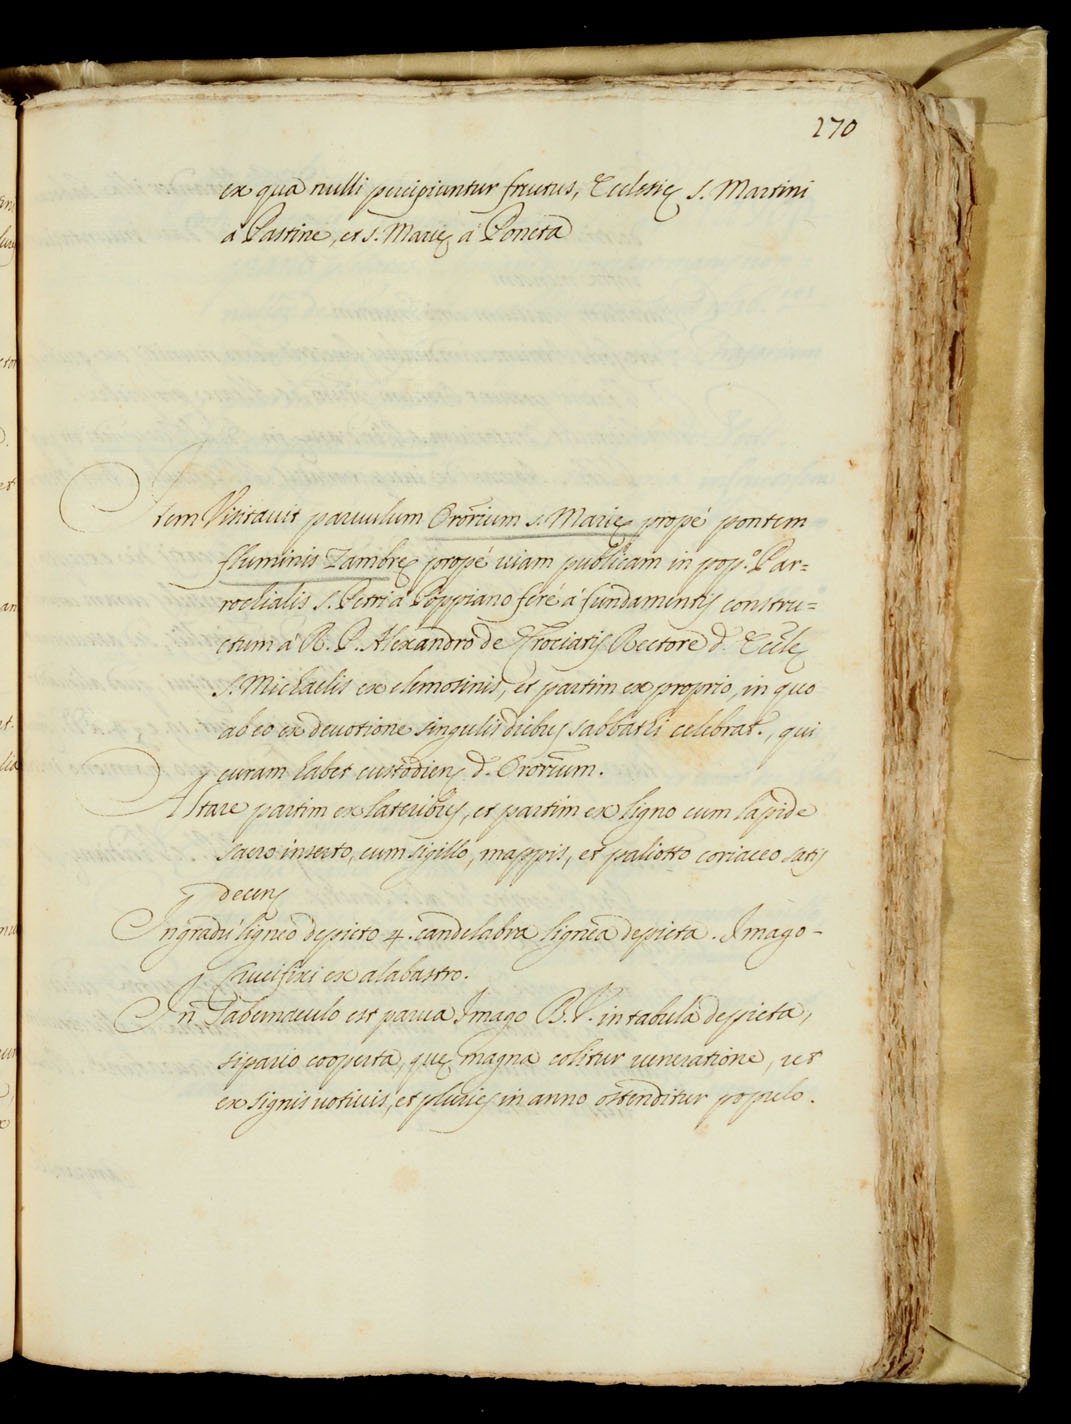 270
ex qua nulli percipiuntur fructus, Ecclesię S. Martini
à Pastine, et S. Marię à Poneta
Item Visitavit parvulum Ororium S. Marię propé pontem
fluminis Zambrę propé viam publicam in pop.º Par=
rochialis S. Petri à Poppiano feré à fundamentis constru=
ctum à R. P. Alexandro de Crociatis Rectore d. Eccłę
S. Michaelis ex elemosinis, et partim ex proprio, in quo
ab eo ex devotione singulis diebus sabbathi celebrat., qui
curam habet custodiens d. Ororium.
Altare partim ex lateribus, et partim ex ligno cum lapide
sacro inserto, cum sigillo, mappis, et paliotto coriaceo satis
decens
In gradu ligneo depicto 4. candelabra lignea depicta. Imago
Crucifixi ex alabastro.
In Tabernaculo est parva Imago B. V. in tabula depicta,
sipario cooperta, quę magna colitur veneratione, ut
ex signis votivis, et pluries in anno ostenditur populo.